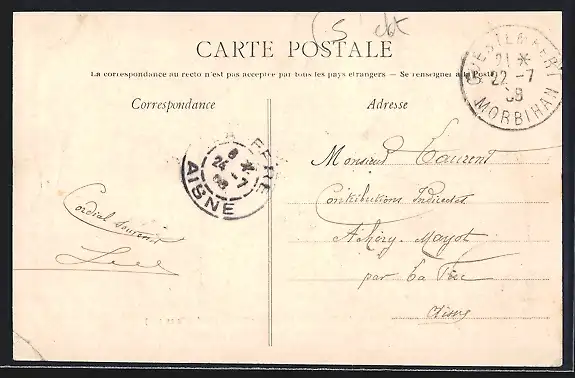 CARTE POSTALE
La correspondance au recto n'est pas acceptée par tous les pays étrangers — Se renseigner à la Poste
Correspondance
Adresse
QUESTEMBERT
21 *
22 -7
08
MORBIHAN
LA FERE
8 *
24 -7
08
AISNE
Monsieur Laurent
Contributions Indirectes
Achery-Mayot
par La Fère
Aisne
Cordial souvenir